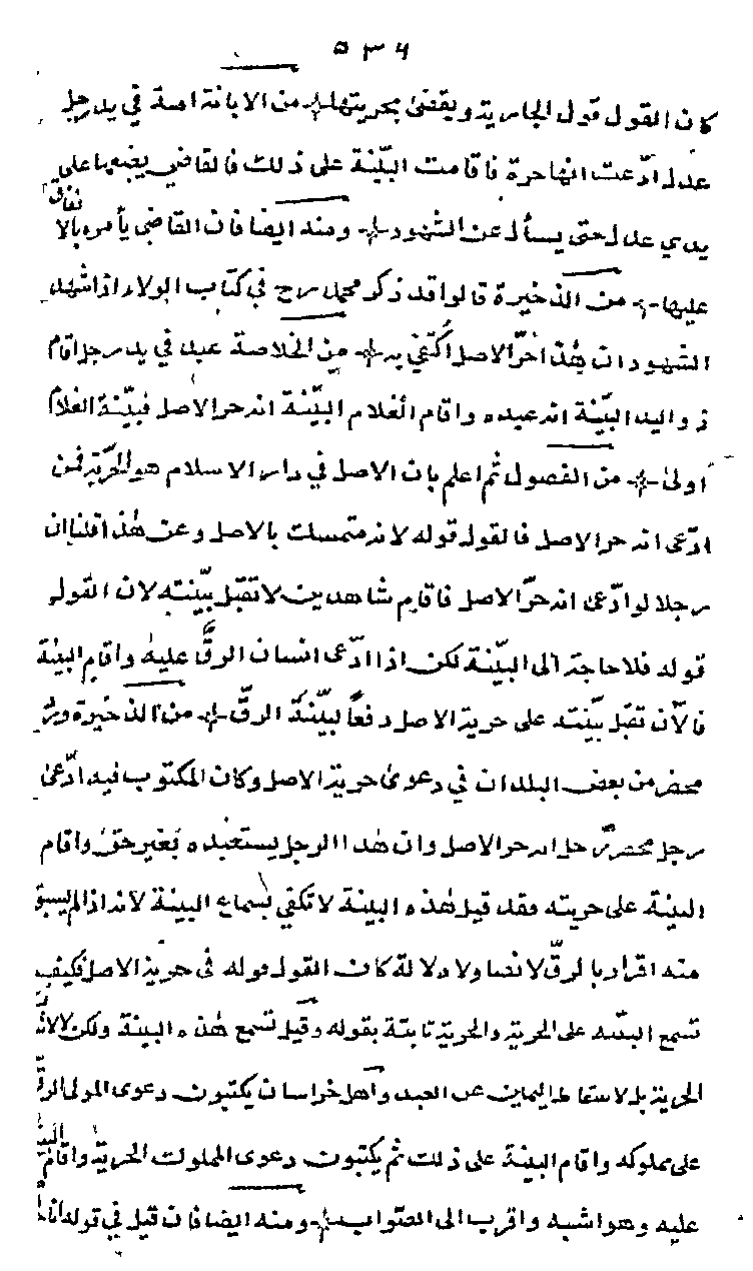 ٥٣٤
كان القول قول الجارية ويقضى بحريتها من الابانة امة في يد رجل
عدل ادّعت انها حرة فاقامت البيّنة على ذلك فالقاضي يضعها على
يدي عدل حتى يسأل عن الشهود ومنه ايضا فان القاضي يأمره بالا
نفاق
عليها من الذخيرة قالوا قد ذكر محمد رح في كتاب الولاء اذا شهد
الشهود ان هذا حرّ الاصل اكتفي به من الخلاصة عبد في يد رجل اقام
ذو اليد البيّنة انه عبده واقام الغلام البيّنة انه حر الاصل فبيّنة الغلام
اولى من الفصول ثم اعلم بان الاصل في دار الاسلام هو الحرّية فمن
ادّعى انه حر الاصل فالقول قوله لانه متمسك بالاصل وعن هذا قلنا ان
رجلا لو ادّعى انه حرّ الاصل فاقام شاهدين لا تقبل بيّنته لان القول
قوله فلا حاجة الى البيّنة لكن اذا ادّعى انسان الرقّ عليه واقام البينة
فالآن تقبل بيّنته على حرية الاصل دفعاً لبيّنة الرقّ من الذخيرة ورد
محضر من بعض البلدان في دعوى حرية الاصل وكان المكتوب فيه ادّعى
رجل محضر رجل انه حر الاصل وان هذا الرجل يستعبده بغير حق واقام
البينة على حريته فقد قيل هذه البينة لا تكفي بسماع البينة لانه اذا لم يسبق
منه اقرار بالرقّ لا نصا ولا دلالة كان القول قوله في حرية الاصل فكيف
تسمع البينه على الحرية والحرية ثابتة بقوله وقيل تسمع هذه البينة ولكن لا لاثبات
الحرية بل لاسقاط اليمين عن العبد واهل خراسان يكتبون دعوى المولى الرقّ
على مملوكه واقام البينة على ذلك ثم يكتبون دعوى المملوك الحرية واقام البينة
عليه وهو اشبه واقرب الى الصّواب ومنه ايضا فان قيل في قوله انا